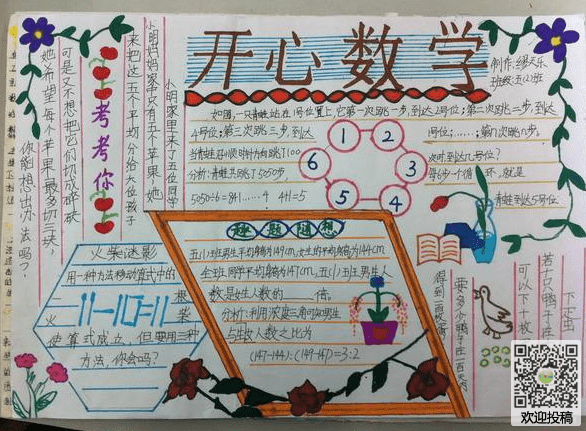 开心数学
制作:缪天乐
班级:五(2)班
如图,一只青蛙站在1号位置上,它第一次跳一步,到达2号位;第二次跳二步,到达
4号位;第三次跳三步,到达
号位;……;第n次跳n步。
当青蛙沿顺时针方向跳了100
次时到达几号位?
分析:青蛙共跳了5050步,
得6步一个循环,就是
5050÷6=841……4 4+1=5
青蛙到达5号位
1
2
3
4
5
6
考考你
小明家里来了五位同学
小明妈妈家中只有五个苹果,她
来把这五个平均分给六位孩子
可是又不想把它们切成碎碎
她希望每个苹果最多切三块,
你能想出办法吗?
火柴谜影
用一种方法移动算式中的
一根火柴
11-10=11
使算式成立,但要用三种
方法,你会吗?
趣题闯想
五(1)班男生平均身高为149cm,女生的平均身高为144cm
全班同学平均身高为147cm,五(1)班男生人
数是女生人数的____倍。
分析:利用浓度三角可知男生
与女生人数之比为
(147-144):(149-147)=3:2
若十只鸭子在
可以下十枚
要多少个鸭子在一百天内
得到一百枚蛋
欢迎投稿